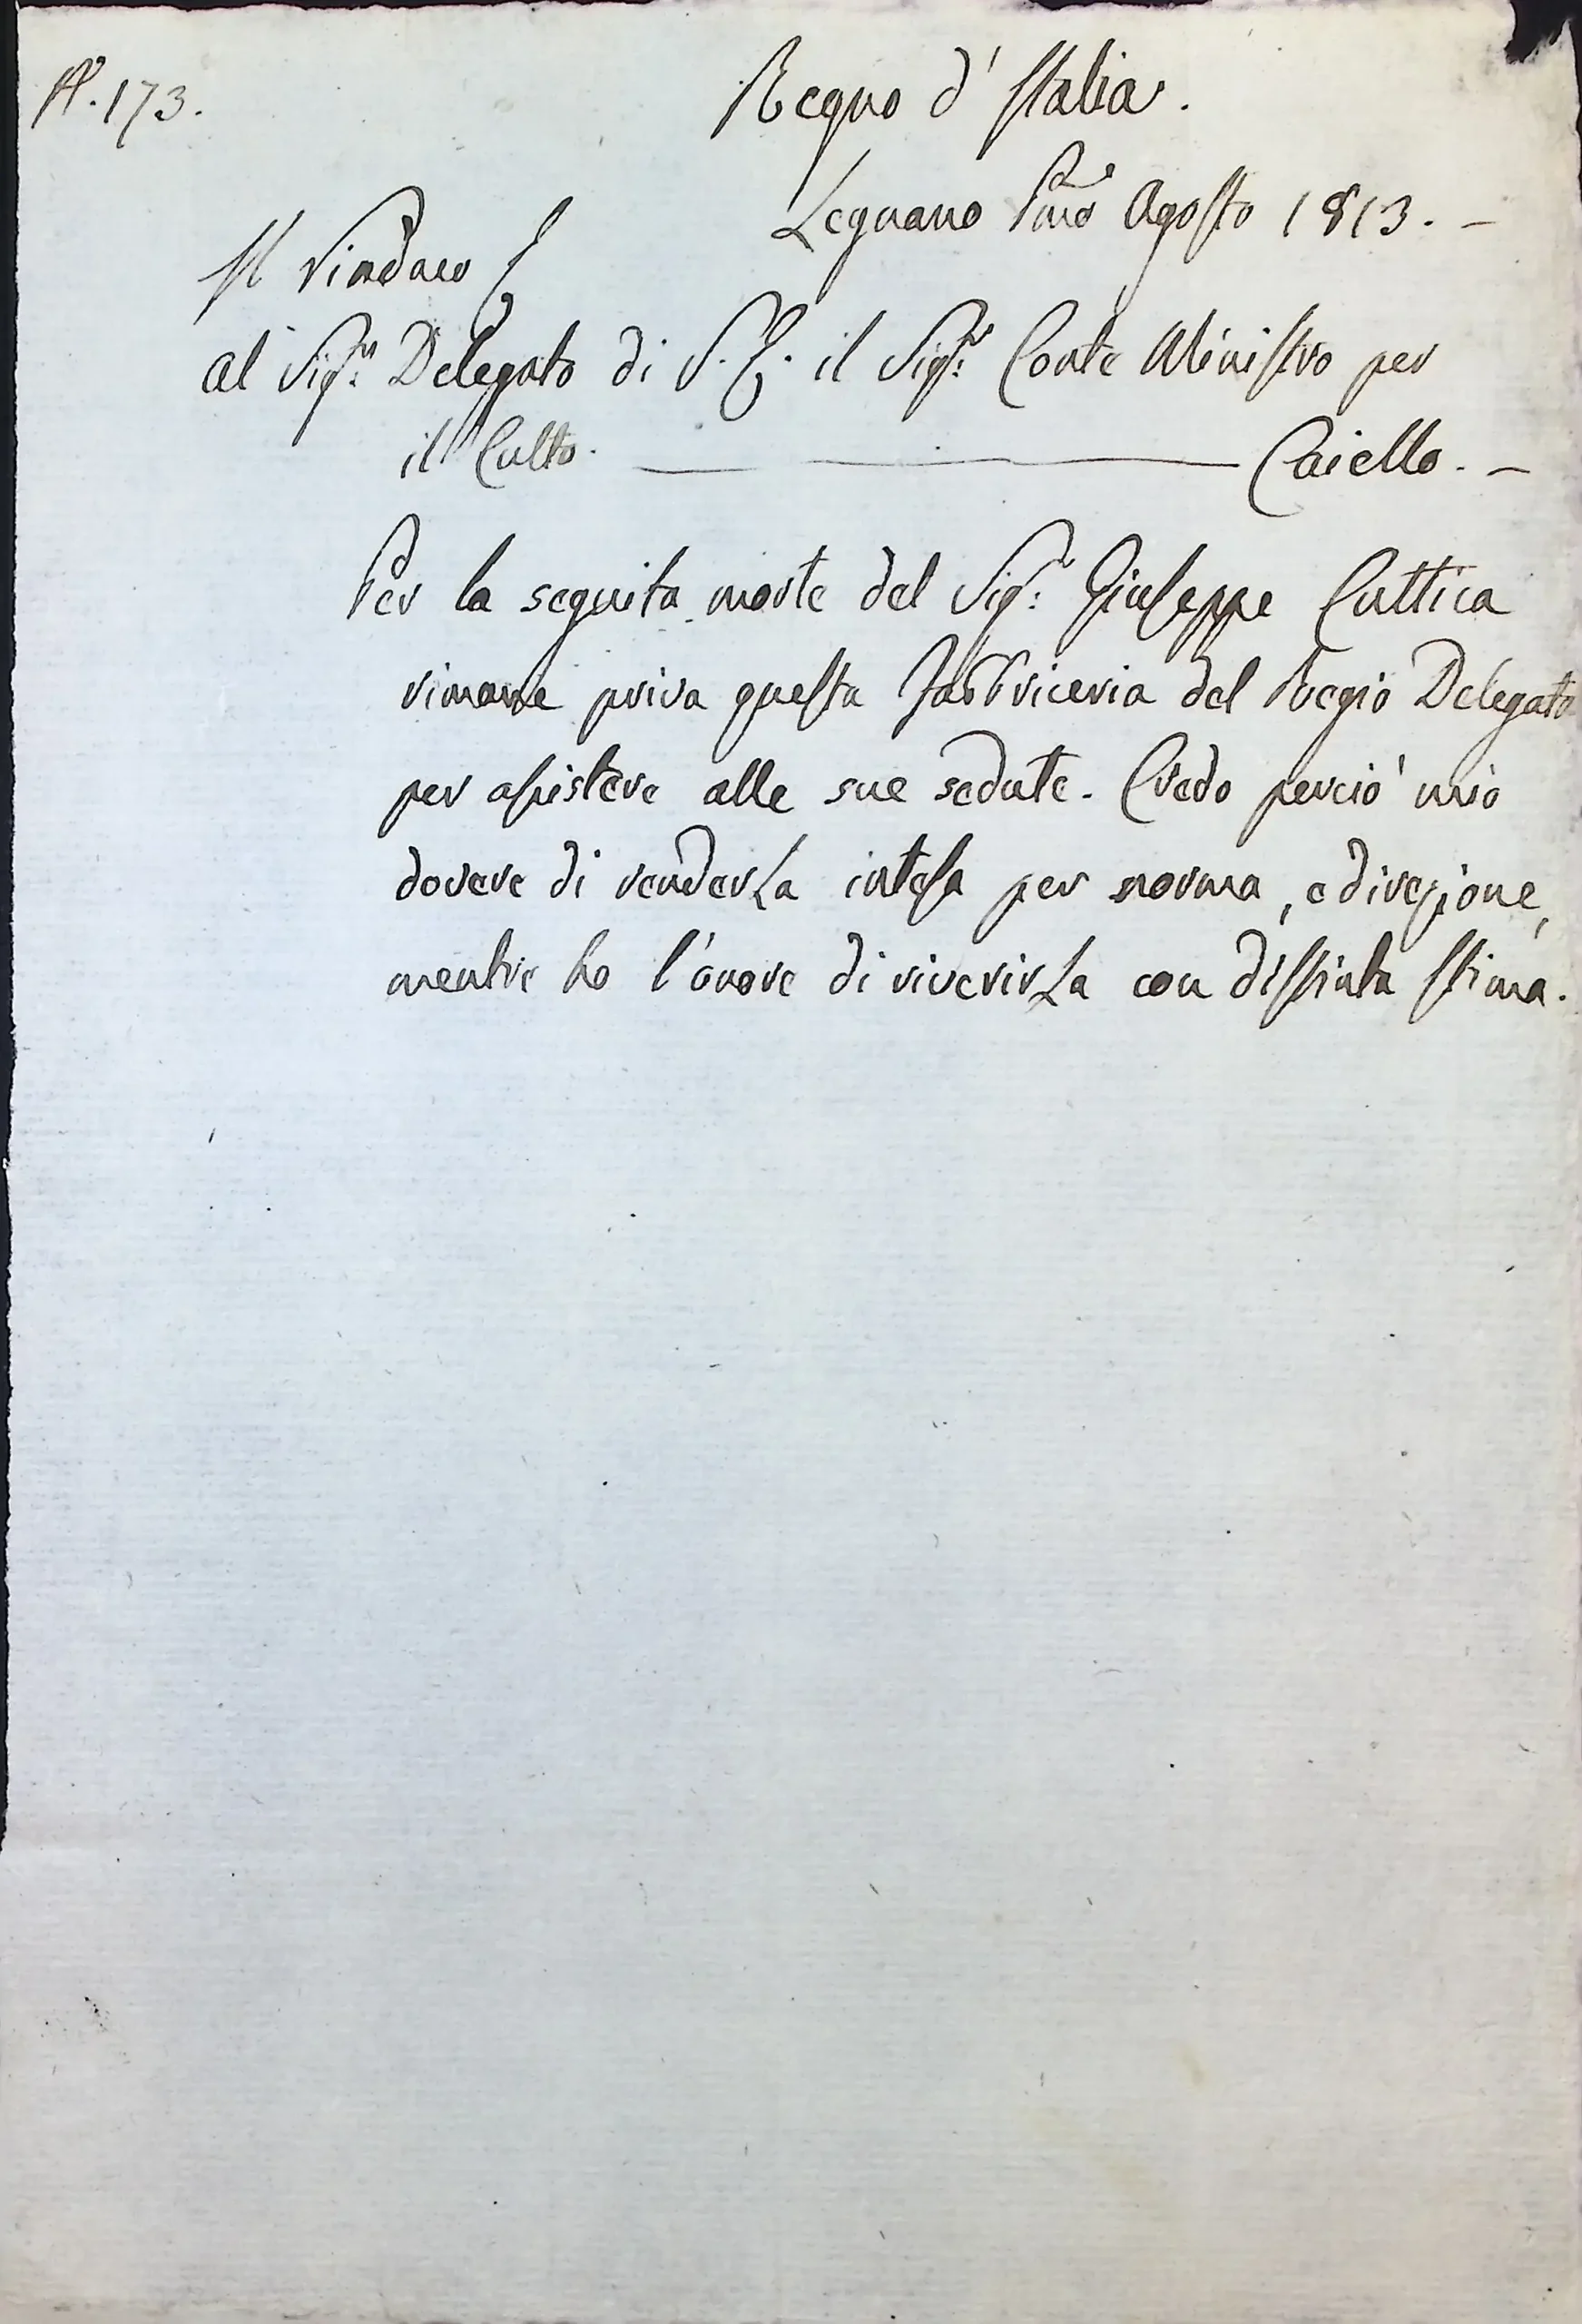 N. 173.
Regno d'Italia.
Legnano Pmo Agosto 1813. -
Il Sindaco
al Sigr: Delegato di S. E. il Sigr: Conte Ministro per
il Culto. Cajello. -
Per la seguita morte del Sigr: Giuseppe Cuttica
rimane priva questa Fabbriceria del Regio Delegato
per assistere alle sue sedute. Credo perciò mio
dovere di renderLa intesa per norma, e direzione,
mentre ho l'onore di riverirLa con distinta stima.